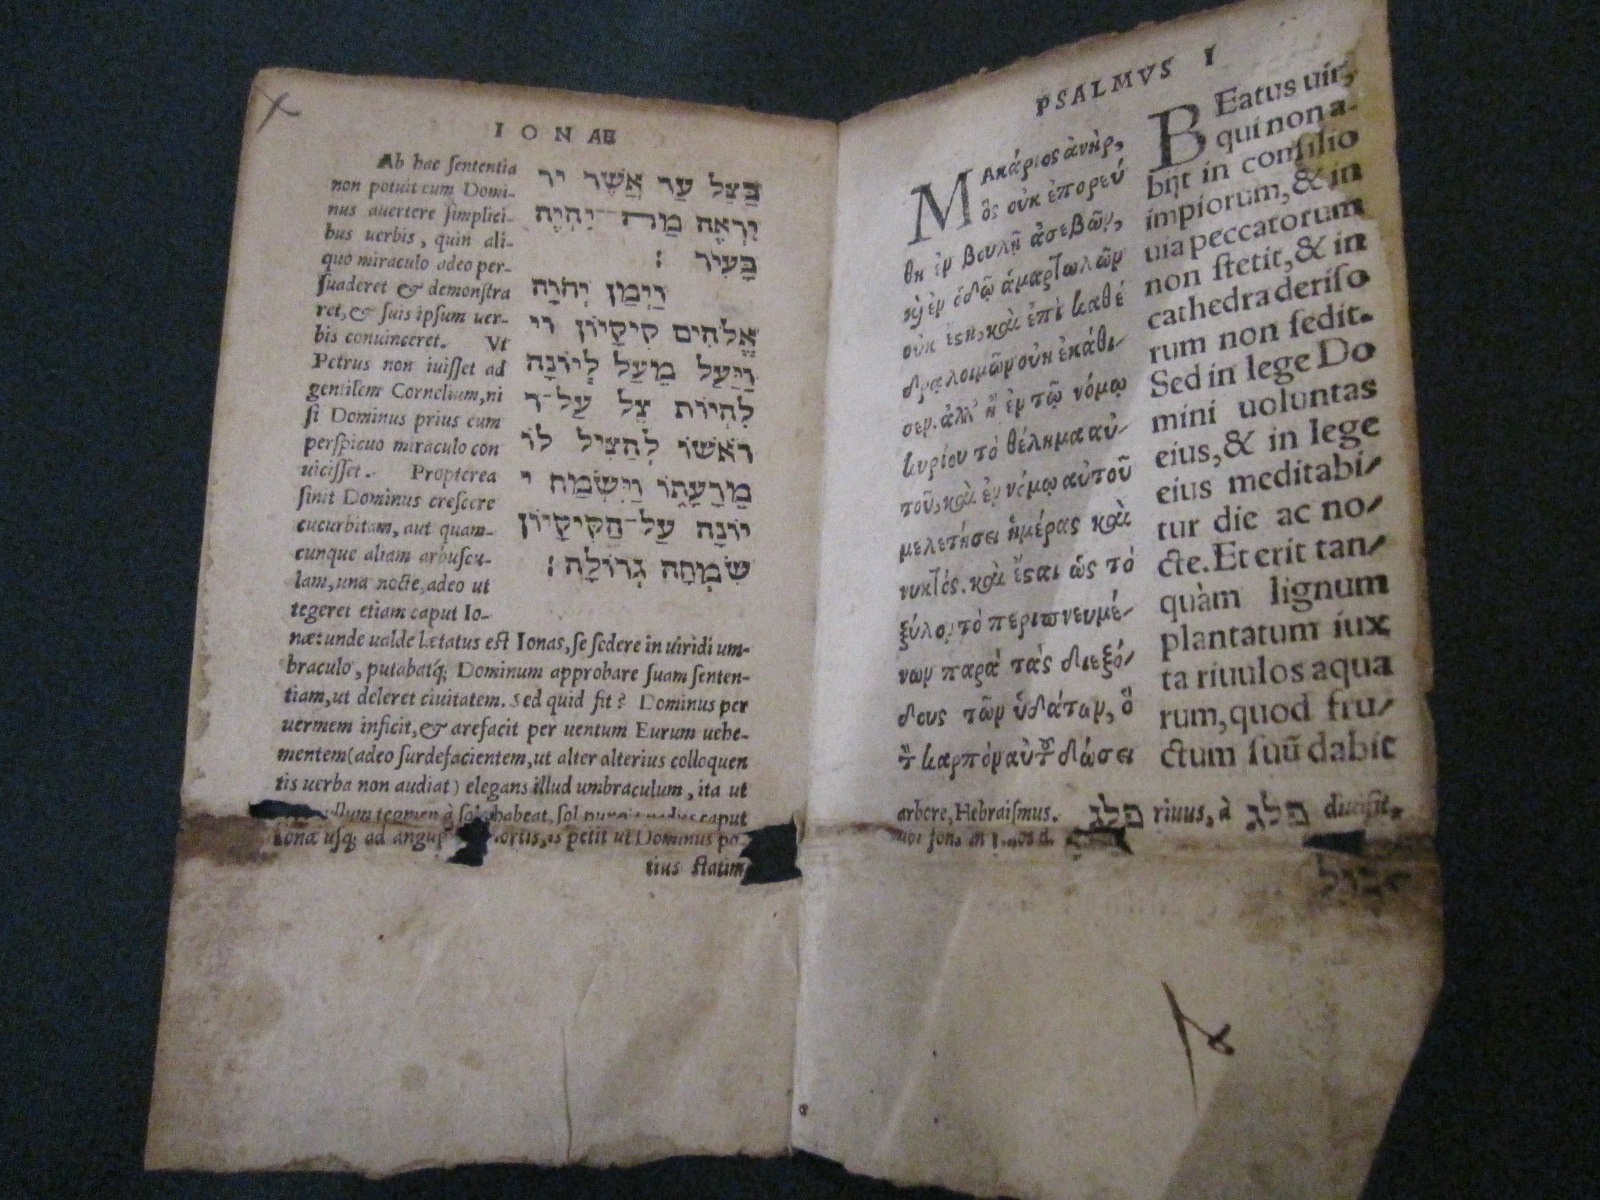 IONAE
Ab hac sententia
non potuit eum Domi-
nus auertere simplici-
bus uerbis, quin ali-
quo miraculo adeo per-
suaderet & demonstra
ret, & suis ipsum uer-
bis conuinceret. Vt
Petrus non iuisset ad
gentilem Cornelium, ni
si Dominus prius eum
perspicuo miraculo con
uicisset. Propterea
sinit Dominus crescere
cucurbitam, aut quam-
cunque aliam arbuscu-
lam, una nocte, adeo ut
tegeret etiam caput Io-
בַּצֵּל עַד אֲשֶׁר יר
יִרְאֶה מַה־יִּהְיֶה
בָּעִיר :
וַיְמַן יְהוָֹה
אֱלֹהִים קִיקָיוֹן וי
וַיַּעַל מֵעַל לְיוֹנָה
לִהְיוֹת צֵל עַל־ר
רֹאשׁוֹ לְהַצִּיל לוֹ
מֵרָעָתוֹ וַיִּשְׂמַח י
יוֹנָה עַל־הַקִּיקָיוֹן
שִׂמְחָה גְדוֹלָה :
næ: unde ualde lætatus est Ionas, se sedere in uiridi um-
braculo, putabatq; Dominum approbare suam senten-
tiam, ut deleret ciuitatem. Sed quid fit? Dominus per
uermem inficit, & arefacit per uentum Eurum uehe-
mentem (adeo surdefacientem, ut alter alterius colloquen
tis uerba non audiat) elegans illud umbraculum, ita ut
tegmen à habeat, sol caput
Ionæ usq; ad is petit ut Dominus po
tius statim
PSALMVS I
Μακάριος ἀνὴρ,
ὃς οὐκ ἐπορεύ
θη ἐν βουλῇ ἀσεβῶν,
καὶ ἐν ὁδῷ ἁμαρτωλῶν
οὐκ ἔστη, καὶ ἐπὶ καθέ
δρα λοιμῶν οὐκ ἐκάθι-
σεν. ἀλλ' ἢ ἐν τῷ νόμῳ
κυρίου τὸ θέλημα αὐ-
τοῦ, καὶ ἐν νόμῳ αὐτοῦ
μελετήσει ἡμέρας καὶ
νυκτός. καὶ ἔσται ὡς τὸ
ξύλον τὸ πεφυτευμέ-
νων παρὰ τὰς διεξό-
δους τῶν ὑδάτων, ὃ
τ καρπὸν αὐτοῦ δώσει
BEatus uir,
qui non a-
bijt in consilio
impiorum, & in
uia peccatorum
non stetit, & in
cathedra deriso
rum non sedit.
Sed in lege Do
mini uoluntas
eius, & in lege
eius meditabi-
tur die ac no-
cte. Et erit tan-
quàm lignum
plantatum iux
ta riuulos aqua
rum, quod fru-
ctum suũ dabit
arbore, Hebraismus. פלג riuus, à פלג diuisit,